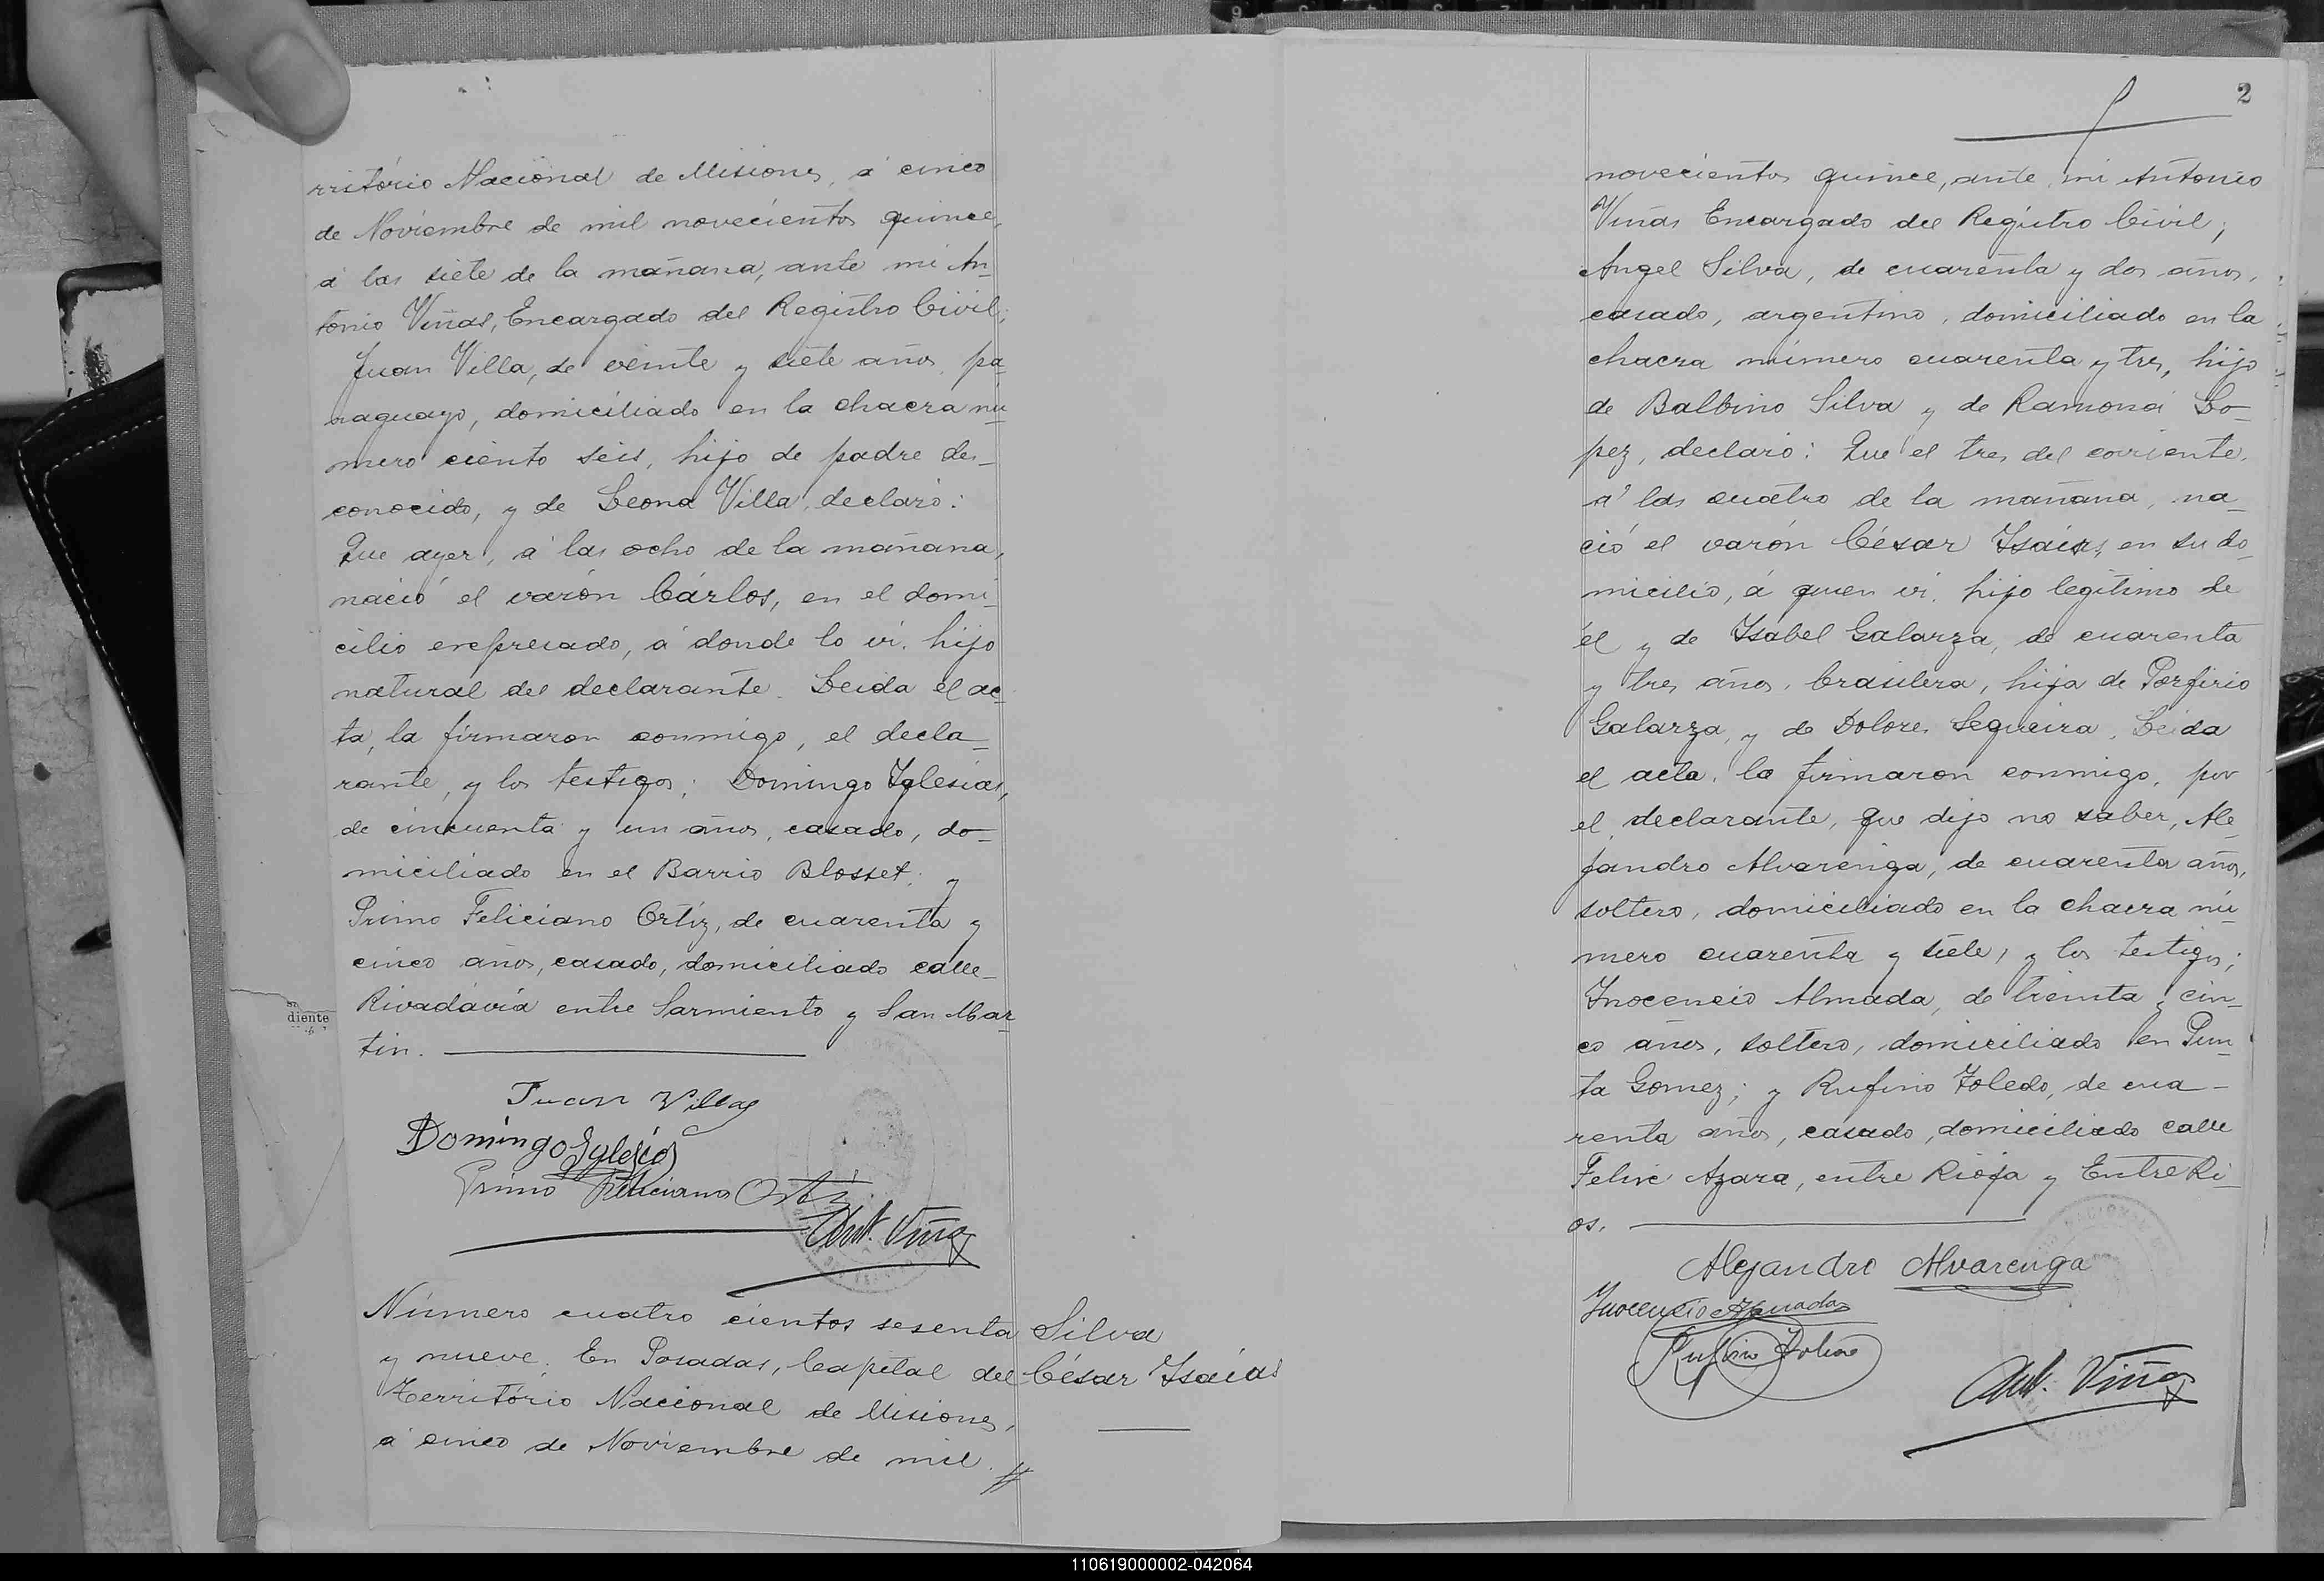 rritório Nacional de Misiones, á cinco
de Noviembre de mil novecientos quince,
á las siete de la mañana, ante mi An_
tonio Viñas, Encargado del Registro Civil;
Juan Villa, de veinte y siete años, pa_
raguayo, domiciliado en la chacra nu_
mero ciento seis, hijo de padre des_
conocido, y de Leona Villa, declaró:
Que ayer, á las ocho de la mañana,
nació el varón Cárlos, en el domi_
cilio expresado, á donde lo vi. hijo
natural del declarante. Leida el ac_
ta, la firmaron conmigo, el decla_
rante, y los testigos; Domingo Iglesias,
de cincuenta y un años, casado, do_
miciliado en el Barrio Blosset; y
Primo Feliciano Ortíz, de cuarenta y
cinco años, casado, domiciliado calle_
Rivadávia entre Sarmiento y San Mar_
tin.
diente
Juan Villa
Domingo Iglesias
Primo Feliciano Ortiz
Ant. Viñas
Número cuatro cientos sesenta
y nueve. En Posadas, Capital del
Território Nacional de Misiones,
á cinco de Noviembre de mil. //
Silva
César Isaías
2
novecientos quince, ante mi Antonio
Viñas Encargado del Registro Civil;
Angel Silva, de cuarenta y dos años,
casado, argentino, domiciliado en la
chacra número cuarenta y tres, hijo
de Balbino Silva y de Ramona Lo_
pez, declaró: Que el tres del corriente,
á las cuatro de la mañana, na_
ció el varón César Isaías, en su do_
micilio, á quien vi. hijo legítimo de
él y de Isabel Galarza, de cuarenta
y tres años, brasilera, hija de Porfirio
Galarza, y de Dolores Sequeira. Leida
el acta, la firmaron conmigo, por
el declarante, que dijo no saber, Ale_
jandro Alvarenga, de cuarenta años,
soltero, domiciliado en la chacra nú_
mero cuarenta y siete, y los testigos;
Inocencio Almada, de treinta y cin_
co años, soltero, domiciliado en Pun_
ta Gomez; y Rufino Toledo, de cua_
renta años, casado, domiciliado calle
Felix Azara, entre Rioja y Entre Ri_
os.
Alejandro Alvarenga
Inocencio Almada
Rufino Toledo
Ant. Viñas
110619000002-042064